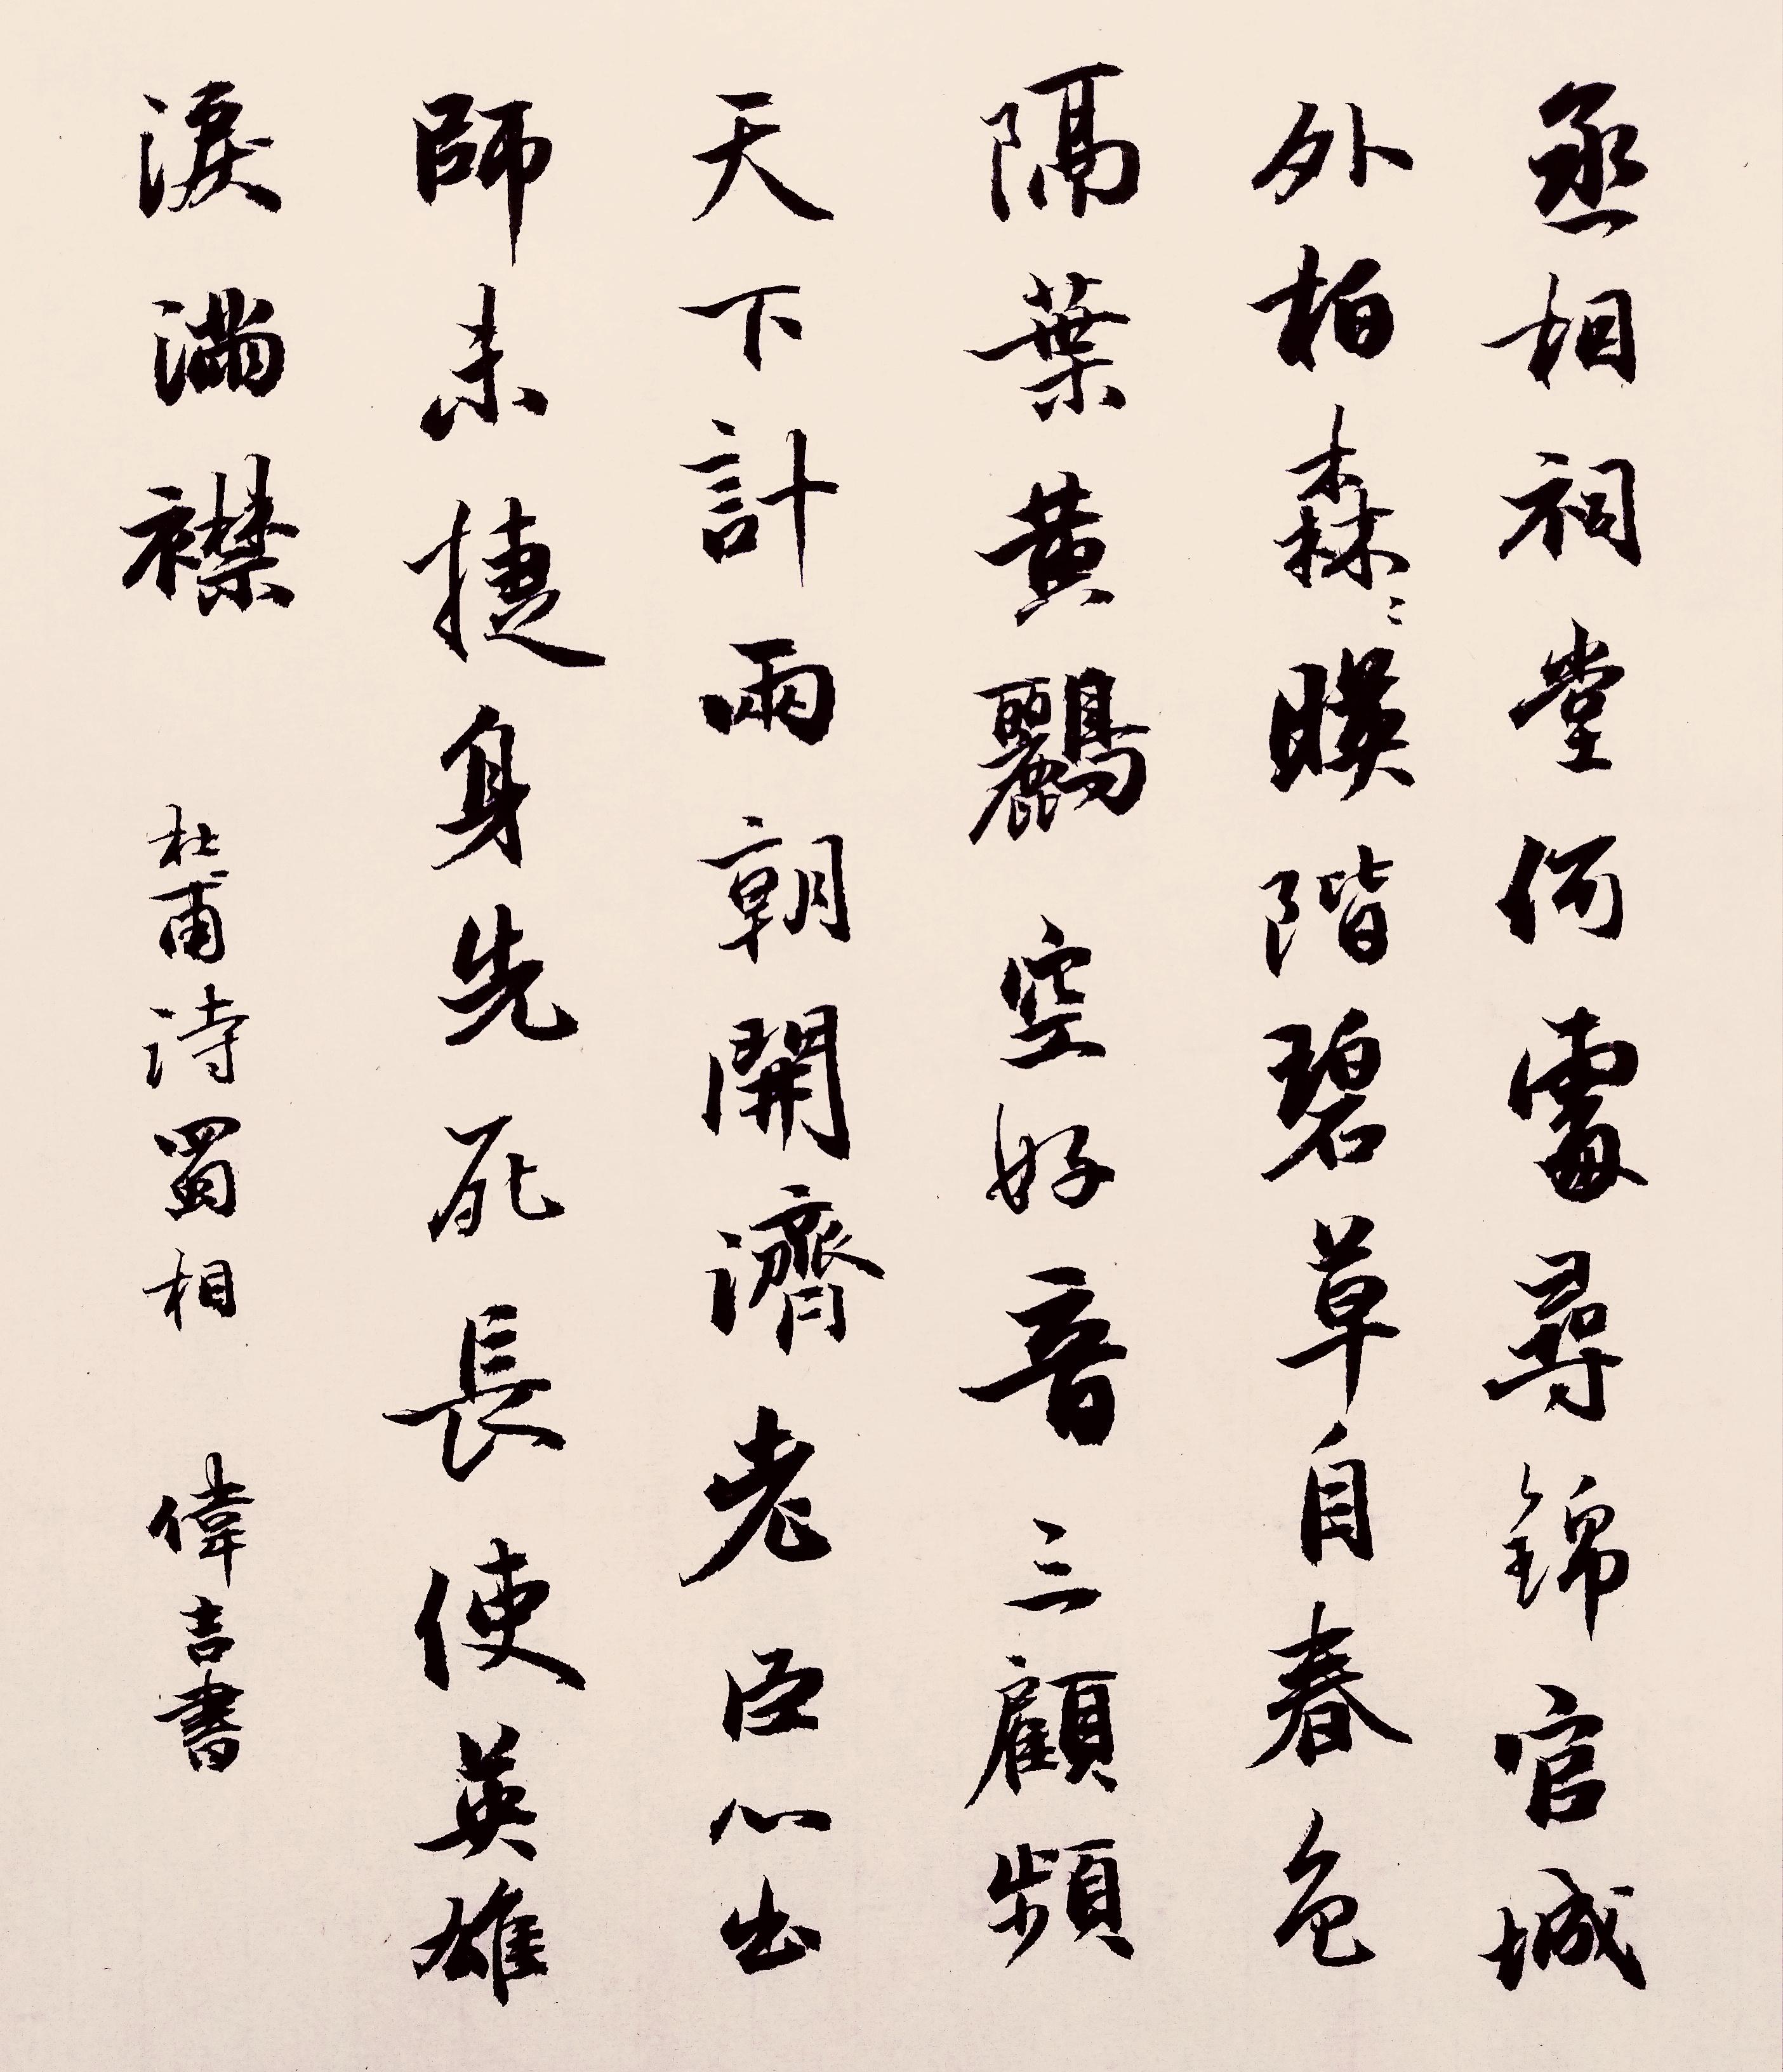 丞相祠堂何處尋錦官城
外柏森々暎階碧草自春色
隔葉黄鸝空好音三顧頻
天下計兩朝開濟老臣心出
師未捷身先死長使英雄
淚滿襟 杜甫诗蜀相 偉吉書